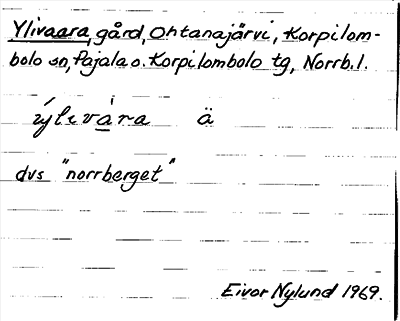 Ylivaara, gård, Ohtanajärvi, Korpilom-
bolo sn, Pajala o. Korpilombolo tg, Norrb.l.
ýlivàra ä
dvs "norrberget"
Eivor Nylund 1969.